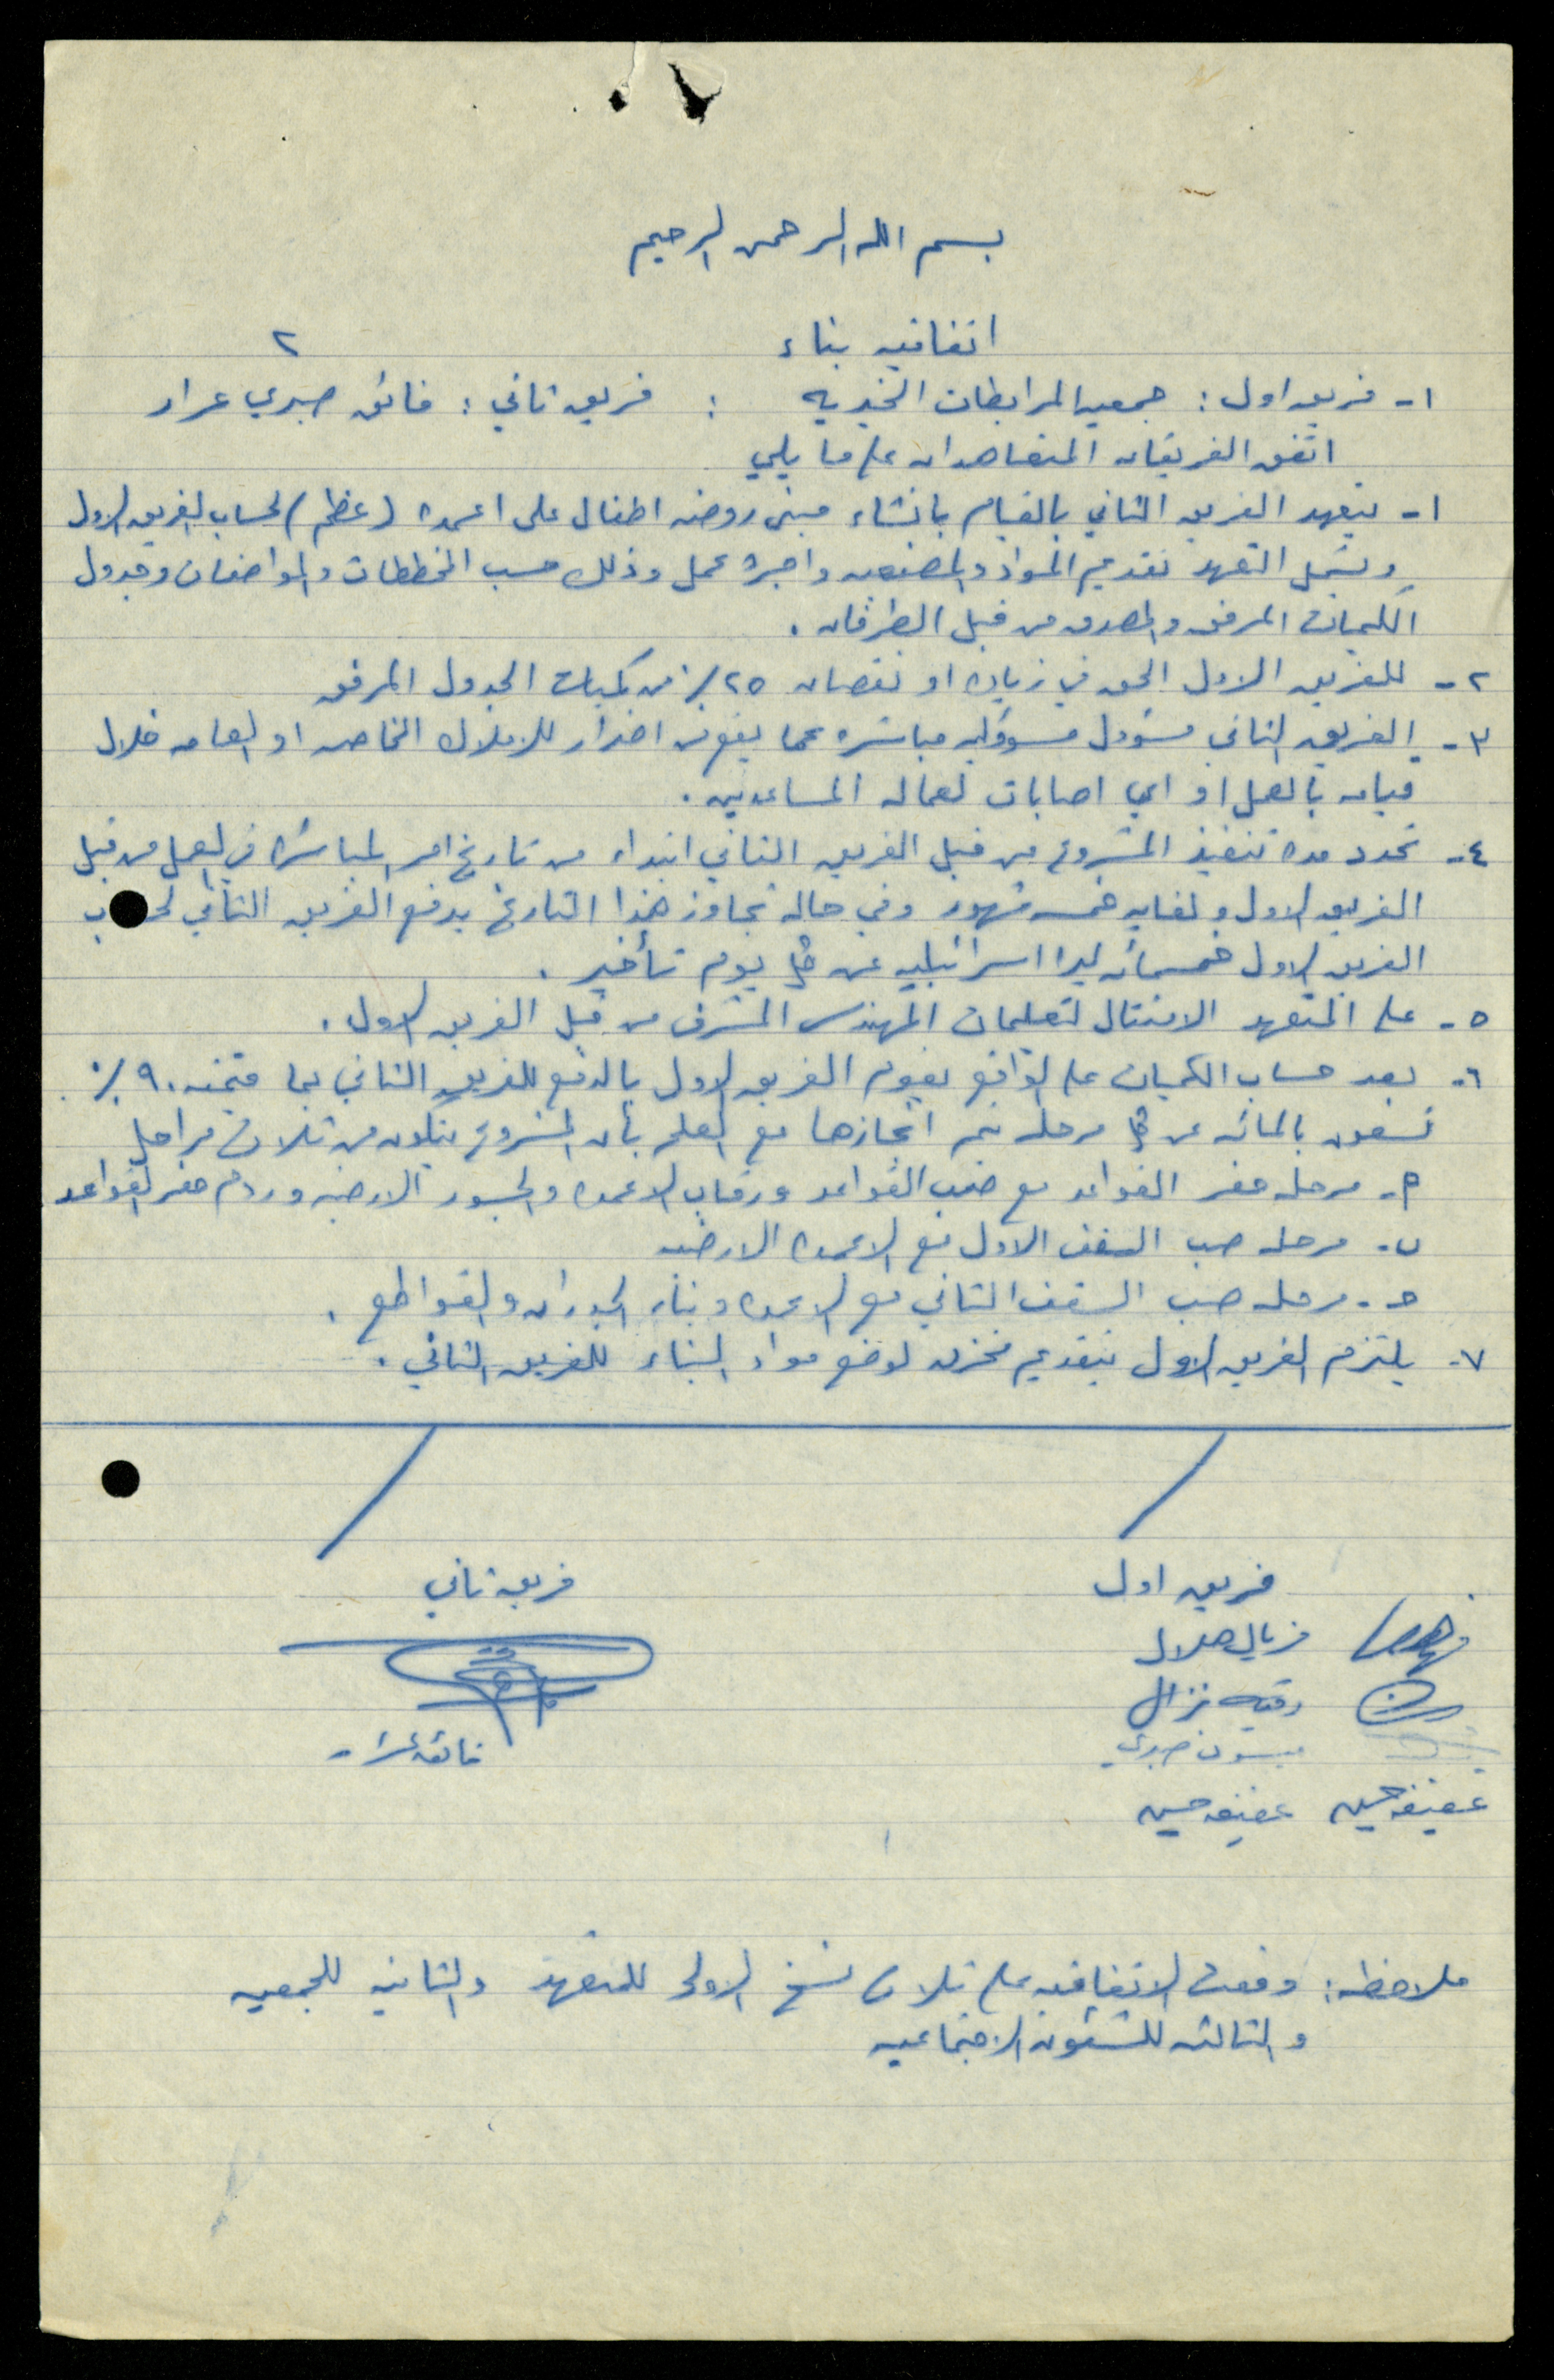 بسم الله الرحمن الرحيم
اتفاقيه بناء
٢
١- فريق اول : جمعيه المرابطات الخيريه : فريق ثاني : فائق صبري عرار
اتفق الفريقان المتعاهدان على ما يلي
١- يتعهد الفريق الثاني بالقيام بانشاء مبنى روضه اطفال على اعمده (عظم) لحساب الفريق الاول
ويشمل التعهد تقديم المواد والمصنعيه واجرة عمل وذلك حسب المخططات والمواصفات وجدول
الكميات المرفق والمصدق من قبل الطرفان .
٢- للفريق الاول الحق في زياده او نقصان ٢٥٪ من كميات الجدول المرفق
٣- الفريق الثاني مسؤول مسؤوليه مباشره عما يقع من اضرار للاملاك الخاصه او العامه خلال
قيامه بالعمل او اي اصابات لعماله المساعدين .
٤- تحدد مده تنفيذ المشروع من قبل الفريق الثاني ابتداء من تاريخ امر المباشره في العمل من قبل
الفريق الاول ولغايه خمسه شهور وفي حاله تجاوز هذا التاريخ يدفع الفريق الثاني لحساب
الفريق الاول خمسمائه ليرا اسرائيليه عن كل يوم تأخير .
٥- على المتعهد الامتثال لتعليمات المهندس المشرف من قبل الفريق الاول .
٦- بعد حساب الكميات على الواقع يقوم الفريق الاول بالدفع للفريق الثاني بما قيمته ٩٠٪
تسعون بالمائه عن كل مرحله يتم انجازها مع العلم بأن المشروع يتكون من ثلاث مراحل
أ- مرحله حفر القواعد مع صب القواعد ورقاب الاعمده والجسور الارضيه وردم حفر القواعد
ب- مرحله صب السقف الاول مع الاعمده الارضيه
ح- مرحله صب السقف الثاني مع الاعمده وبناء الجدران والقواطع .
٧- يلتزم الفريق الاول بتقديم مخزن لوضع مواد البناء للفريق الثاني .
فريق اول
فريق ثاني
فريال هلال
رقيه نزال
ميسون صبري
فائق عرار
عفيفه حسين عفيفه حسين
ملاحظه : وقعت الاتفاقيه على ثلاث نسخ الاولى للمتعهد والثانيه للجمعيه
والثالثه للشئون الاجتماعيه